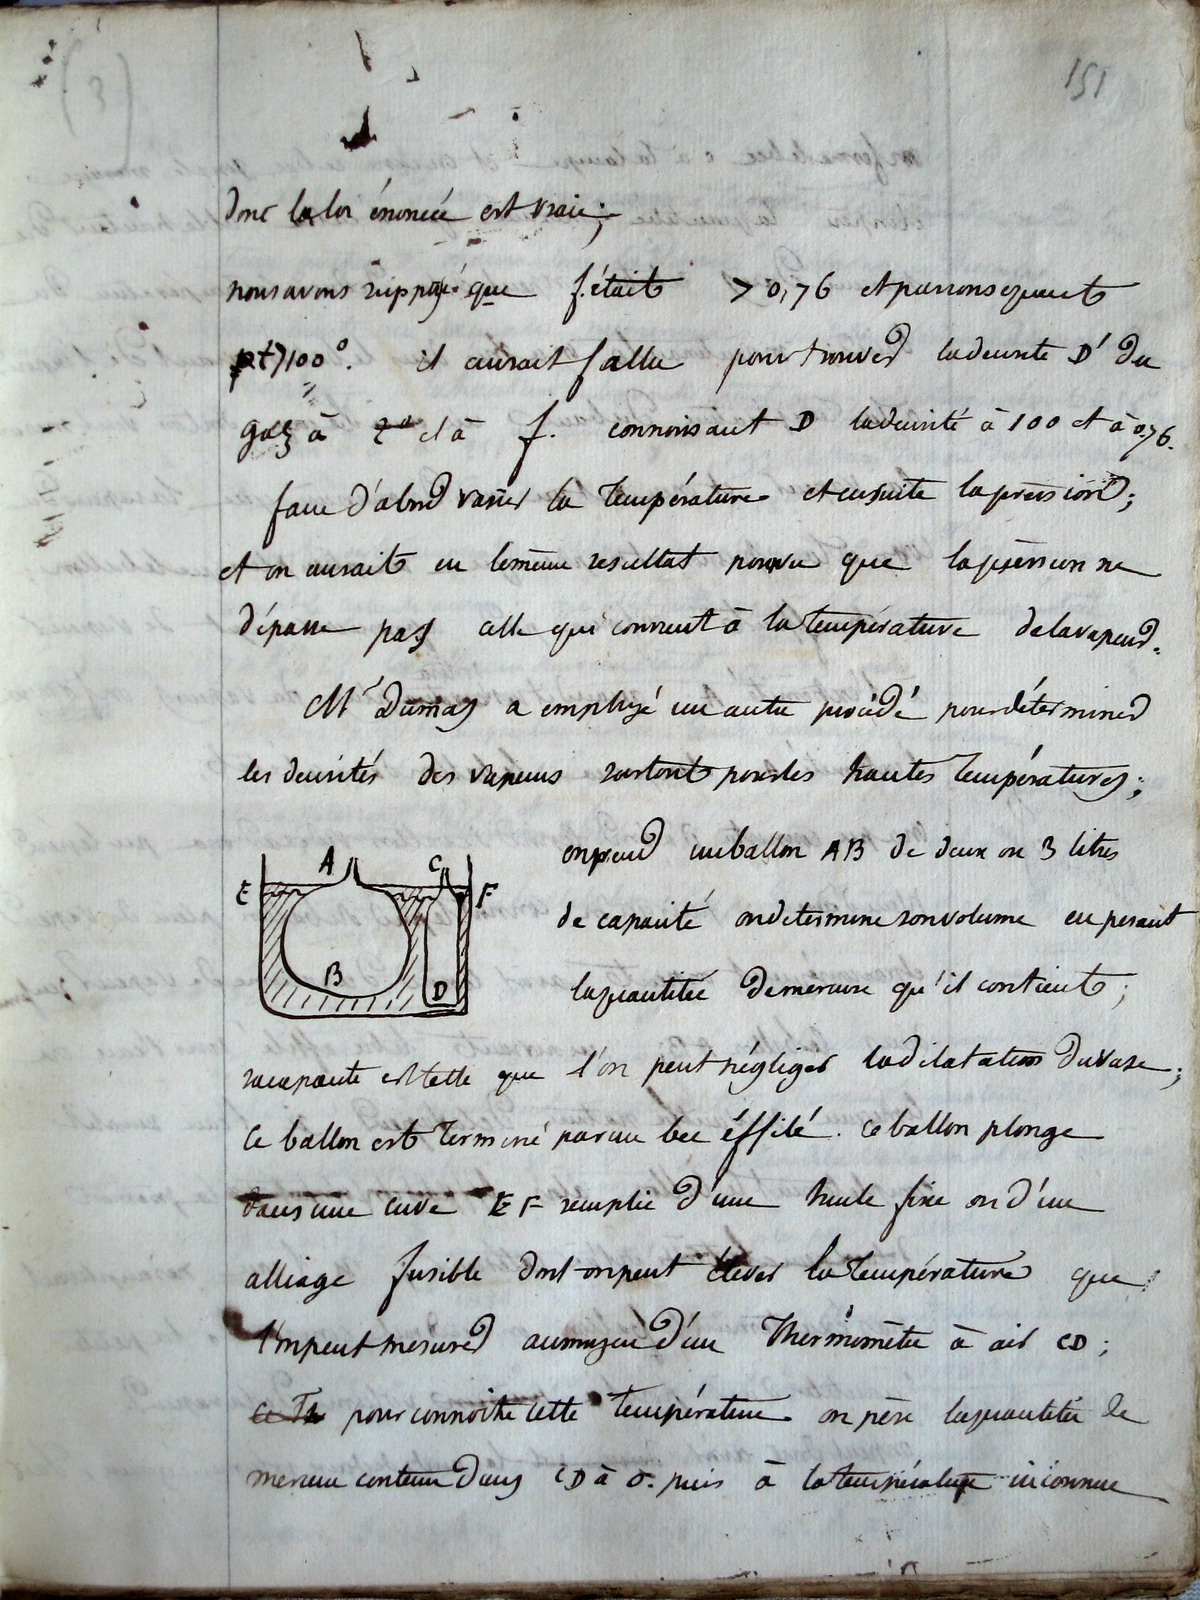 151
(3)
donc la loi énoncée est vraie;
nous avons supposé que f. était > 0,76 et par conséquent
t > 100°. il aurait fallu pour trouver la densité D' du
gaz à t° et à f. connoissant D la densité à 100 et à 0,76.
faire d'abord varier la température et ensuite la pression;
et on aurait eu le même resultat pourvu que la pression ne
dépasse pas celle qui convient à la température de la vapeur.
Mr Dumas a employé un autre procédé pour déterminer
les densités des vapeurs surtout pour les hautes températures;
on prend un ballon AB de deux ou 3 litres
de capacité on determine son volume en pesant
la quantitée de mercure qu'il contient;
A
C
E
F
B
D
sa capacité est telle que l'on peut négliger la dilatation du vase;
ce ballon est terminé par un bec éffilé. ce ballon plonge
dans une cuve EF remplie d'une huile fixe ou d'un
alliage fusible dont on peut élever la température que
l'on peut mesurer au moyen d'un thermomètre à air CD;
ce Th pour connoitre cette température on pèse la quantitée de
mercure contenu dans CD à 0. puis à la température inconnue